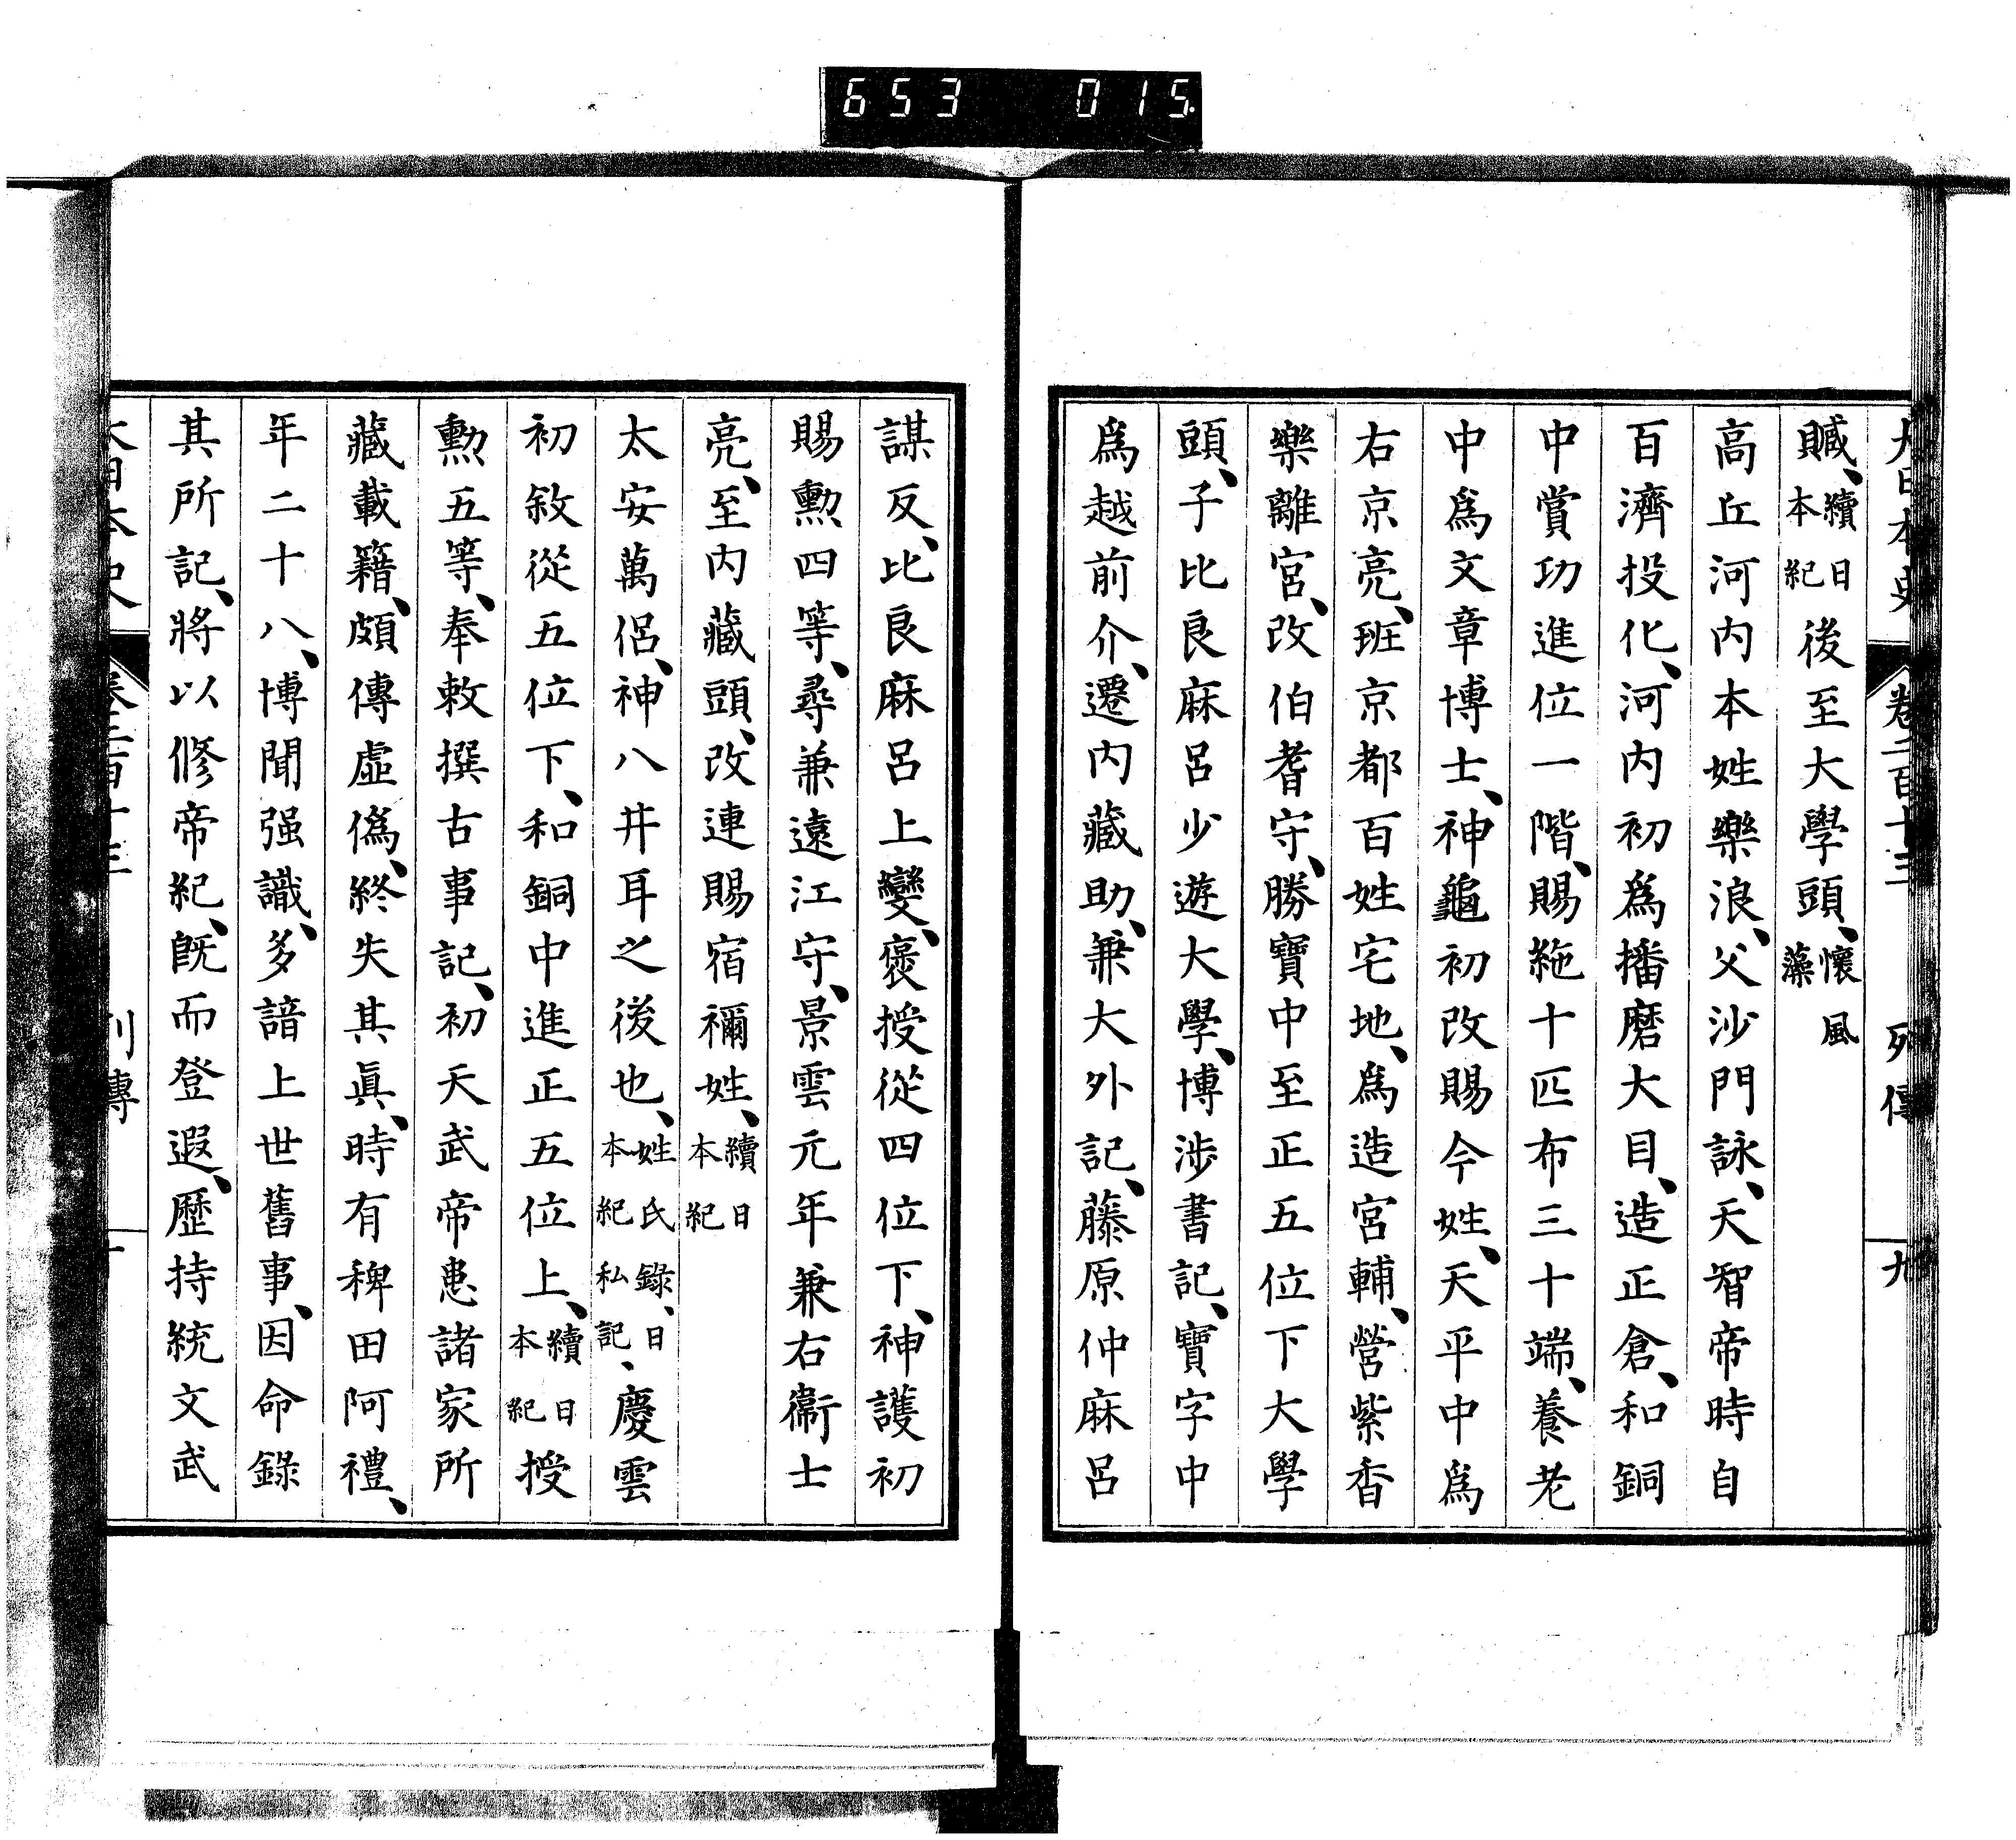 653 015
大日本史 卷二百十三 列傳 九
贓、續日本紀後至大學頭、懷風藻
高丘河內本姓樂浪、父沙門詠、天智帝時自
百濟投化、河內初爲播磨大目、造正倉、和銅
中賞功進位一階、賜絁十匹布三十端、養老
中爲文章博士、神龜初改賜今姓、天平中爲
右京亮、班京都百姓宅地、爲造宮輔、營紫香
樂離宮、改伯耆守、勝寶中至正五位下大學
頭、子比良麻呂少遊大學、博涉書記、寶字中
爲越前介、遷內藏助、兼大外記、藤原仲麻呂
謀反、比良麻呂上變、褒授從四位下、神護初
賜勲四等、尋兼遠江守、景雲元年兼右衞士
亮、至內藏頭、改連賜宿禰姓、續日本紀
太安萬侶、神八井耳之後也、姓氏錄、日本紀私記、慶雲
初敘從五位下、和銅中進正五位上、續日本紀授
勲五等、奉敕撰古事記、初天武帝患諸家所
藏載籍、頗傳虛僞、終失其眞、時有稗田阿禮、
年二十八、博聞强識、多諳上世舊事、因命錄
其所記、將以修帝紀、旣而登遐、歷持統文武
大日本史 卷二百十三 列傳 十